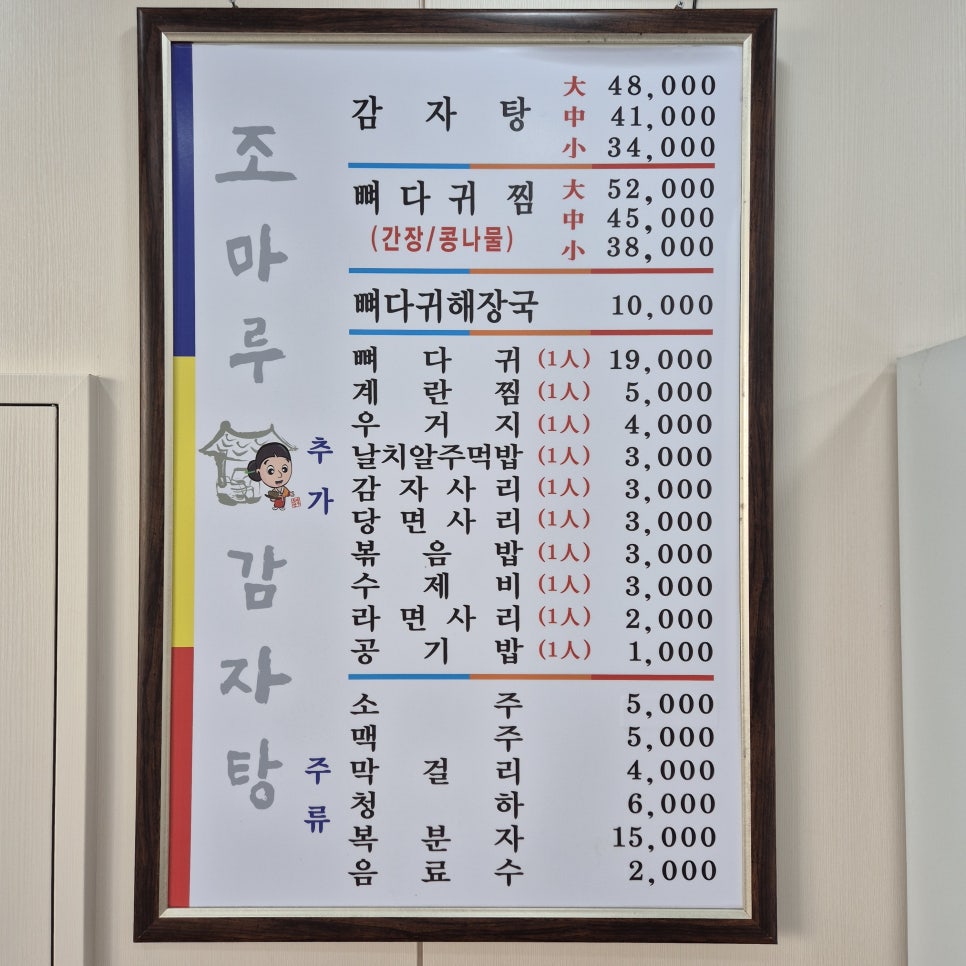 조마루감자탕
감자탕 大 48,000
中 41,000
小 34,000
뼈다귀찜 大 52,000
(간장/콩나물) 中 45,000
小 38,000
뼈다귀해장국 10,000
추가
뼈다귀 (1人) 19,000
계란찜 (1人) 5,000
우거지 (1人) 4,000
날치알주먹밥 (1人) 3,000
감자사리 (1人) 3,000
당면사리 (1人) 3,000
볶음밥 (1人) 3,000
수제비 (1人) 3,000
라면사리 (1人) 2,000
공기밥 (1人) 1,000
주류
소주 5,000
맥주 5,000
막걸리 4,000
청하 6,000
복분자 15,000
음료수 2,000